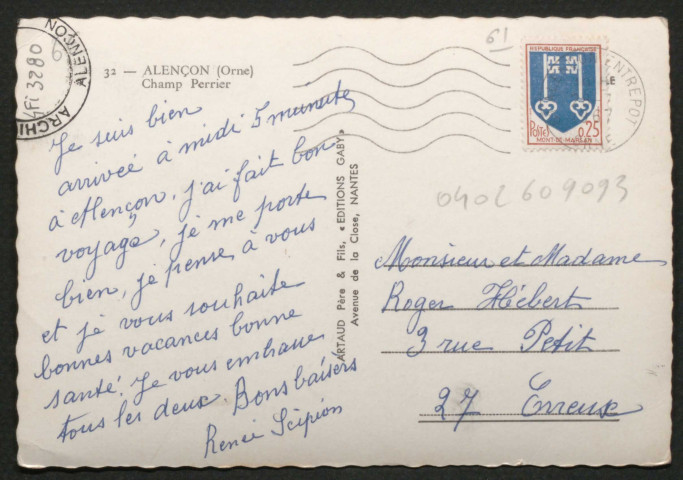 ARCHI
ALENÇON
4FI 3280
6
32 — ALENÇON (Orne)
Champ Perrier
Je suis bien
arrivée à midi 5 minutes
à Alençon, j'ai fait bon
voyage, je me porte
bien, je pense à vous
et je vous souhaite
bonnes vacances bonne
santé. Je vous embrasse
tous les deux. Bons baisers
Renée Scipion
ARTAUD Père & Fils, « EDITIONS GABY »
Avenue de la Close, NANTES
61
REPUBLIQUE FRANÇAISE
POSTES 0,25
MONT-DE-MARSAN
ENTREPOT
0402609093
Monsieur et Madame
Roger Hébert
3 rue Petit
27 Evreux